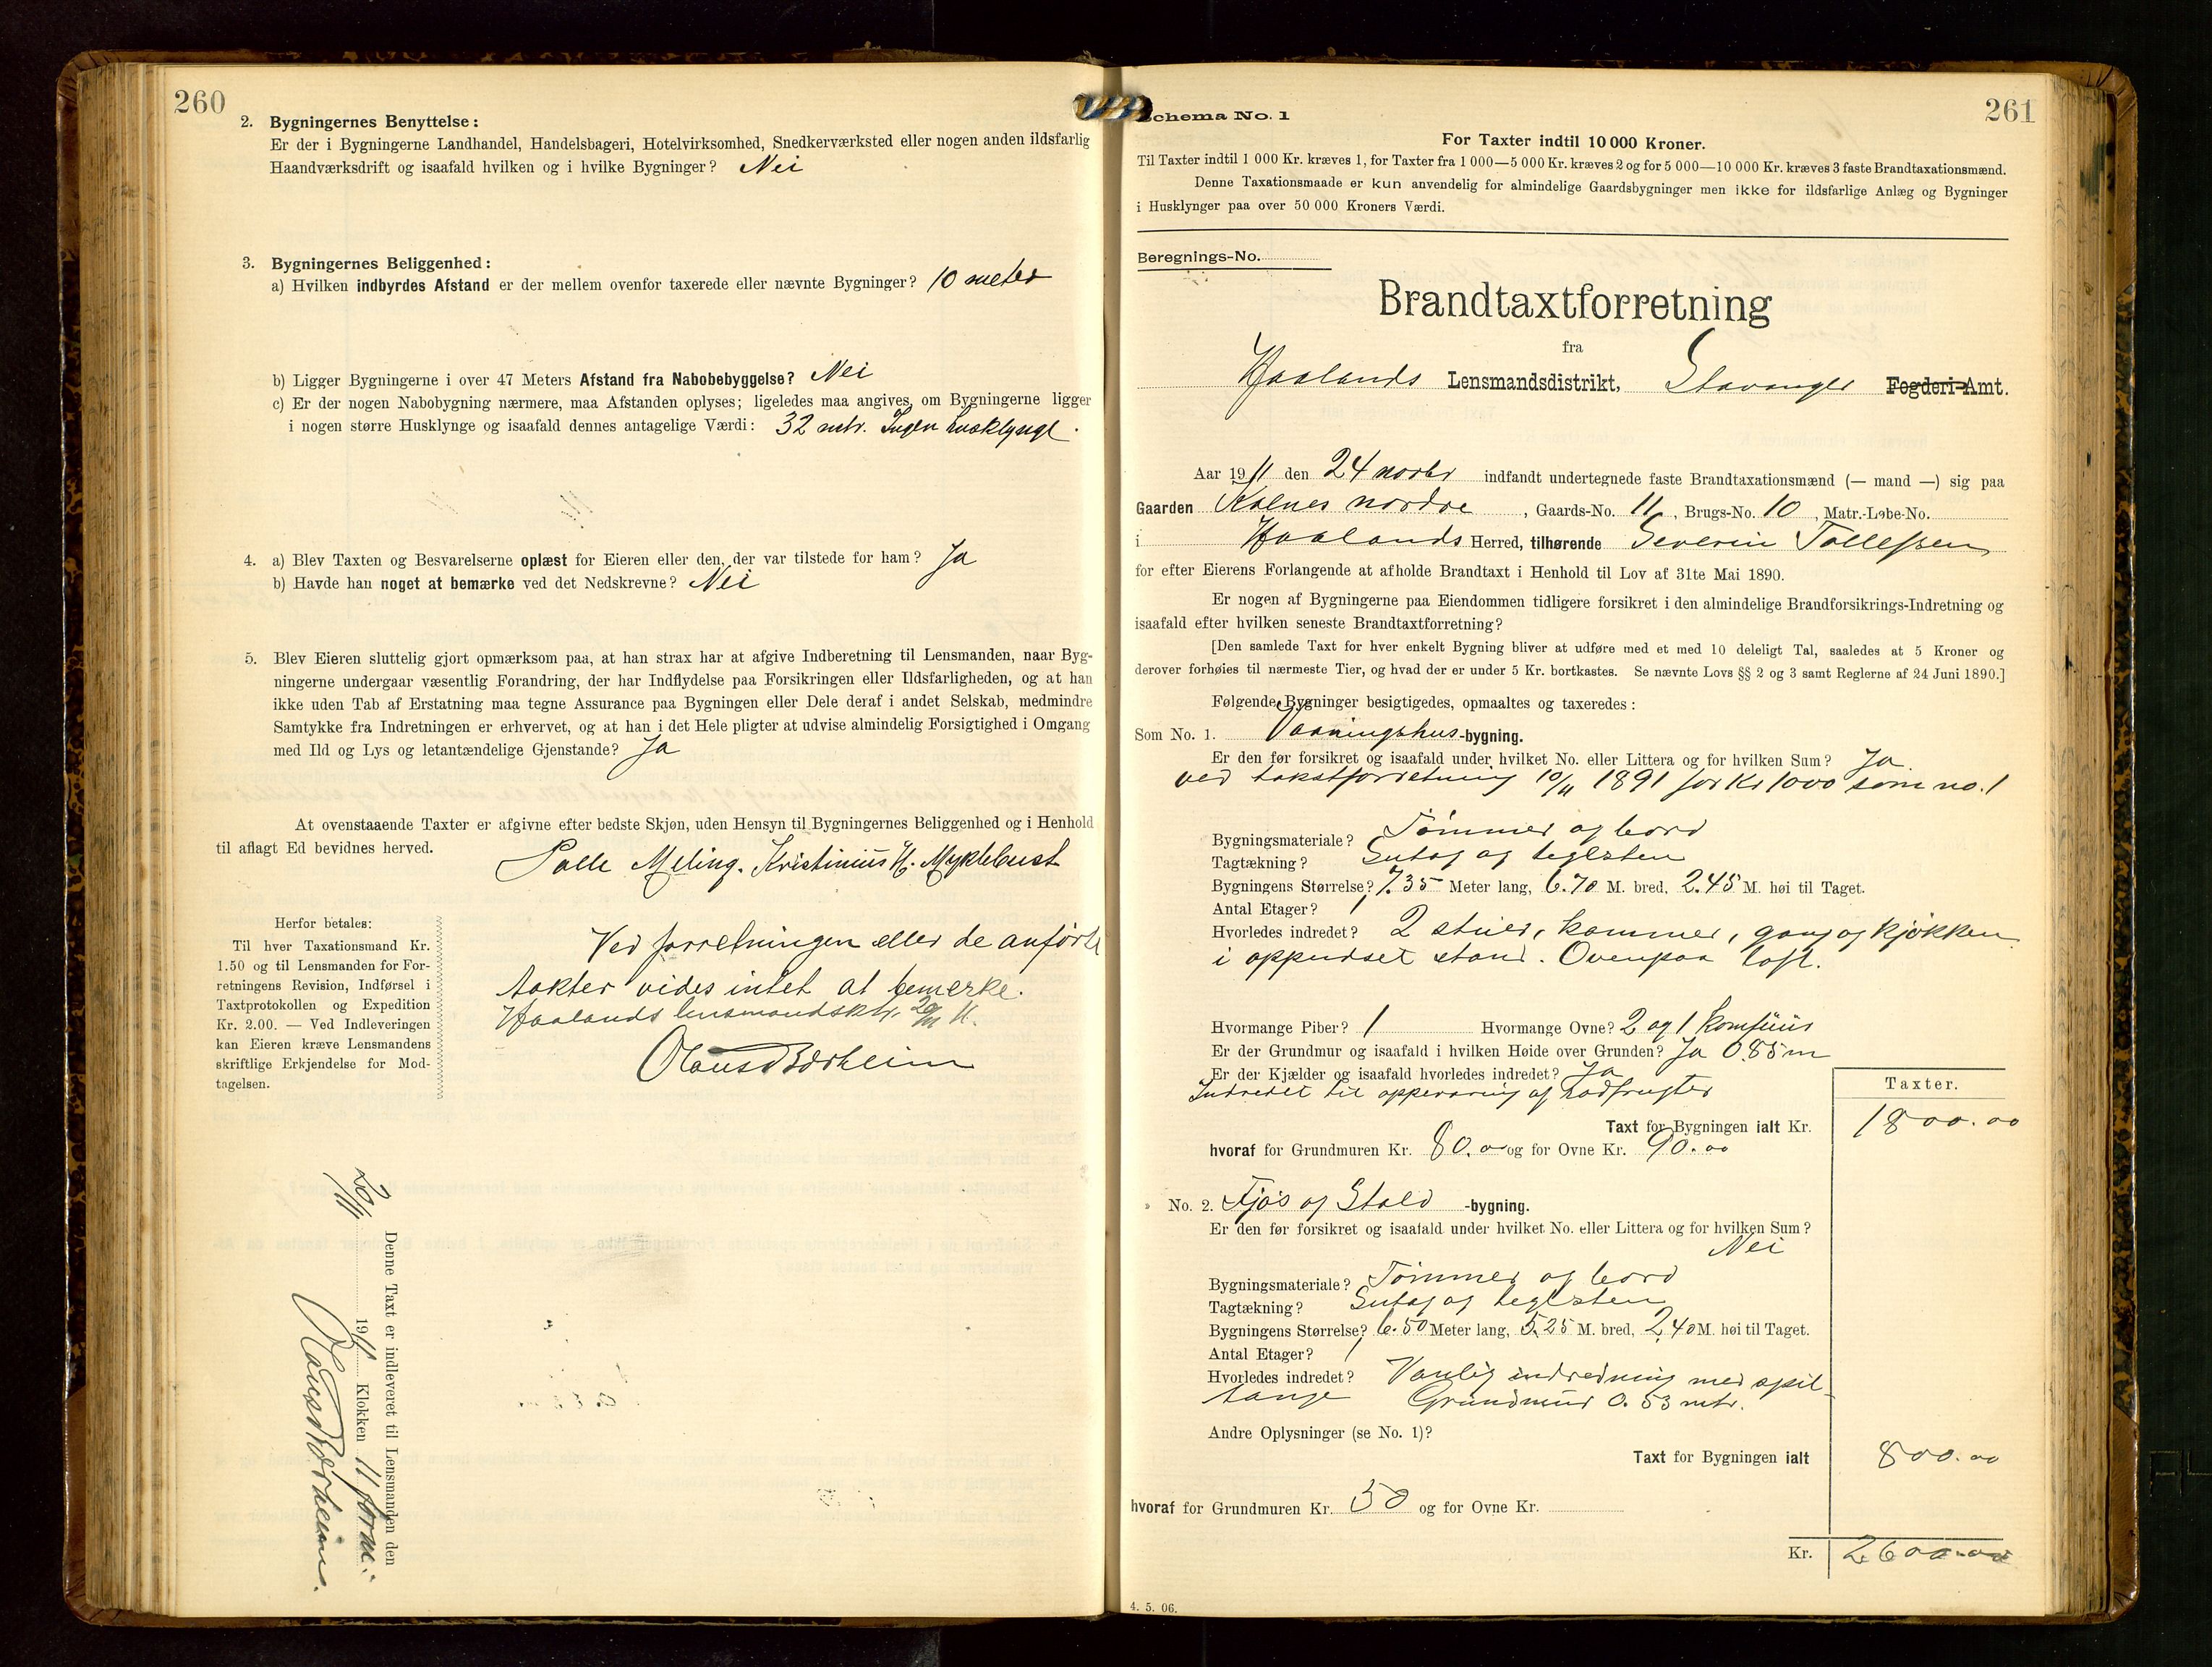 260
2. Bygningernes Benyttelse:
Er der i Bygningerne Landhandel, Handelsbageri, Hotelvirksomhed, Snedkerværksted eller nogen anden ildsfarlig
Haandværksdrift og isaafald hvilken og i hvilke Bygninger? Nei
3. Bygningernes Beliggenhed:
a) Hvilken indbyrdes Afstand er der mellem ovenfor taxerede eller nævnte Bygninger? 10 meter
b) Ligger Bygningerne i over 47 Meters Afstand fra Nabobebyggelse? Nei
c) Er der nogen Nabobygning nærmere, maa Afstanden oplyses; ligeledes maa angives, om Bygningerne ligger
i nogen større Husklynge og isaafald dennes antagelige Værdi: 32 mtr. Ingen husklynge.
4. a) Blev Taxten og Besvarelserne oplæst for Eieren eller den, der var tilstede for ham? Ja
b) Havde han noget at bemærke ved det Nedskrevne? Nei
5. Blev Eieren sluttelig gjort opmærksom paa, at han strax har at afgive Indberetning til Lensmanden, naar Byg-
ningerne undergaar væsentlig Forandring, der har Indflydelse paa Forsikringen eller Ildsfarligheden, og at han
ikke uden Tab af Erstatning maa tegne Assurance paa Bygningen eller Dele deraf i andet Selskab, medmindre
Samtykke fra Indretningen er erhvervet, og at han i det Hele pligter at udvise almindelig Forsigtighed i Omgang
med Ild og Lys og letantændelige Gjenstande? Ja
At ovenstaaende Taxter er afgivne efter bedste Skjøn, uden Hensyn til Bygningernes Beliggenhed og i Henhold
til aflagt Ed bevidnes herved.
Salle Meling. Kristinius H. Myklebust
Herfor betales:
Til hver Taxationsmand Kr.
1.50 og til Lensmanden for For-
retningens Revision, Indførsel i
Taxtprotokollen og Expedition
Kr. 2.00. — Ved Indleveringen
kan Eieren kræve Lensmandens
skriftlige Erkjendelse for Mod-
tagelsen.
Ved forretningen eller de anførte
takter vides intet at bemerke.
Haalands lensmandsktr. 29/11 11.
Olaus Børheim
Denne Taxt er indleveret til Lensmanden den
29/11 1911 Klokken 11 form.
Olaus Børheim.
261
Schema No. 1
For Taxter indtil 10 000 Kroner.
Til Taxter indtil 1 000 Kr. kræves 1, for Taxter fra 1 000—5 000 Kr. kræves 2 og for 5 000—10 000 Kr. kræves 3 faste Brandtaxationsmænd.
Denne Taxationsmaade er kun anvendelig for almindelige Gaardsbygninger men ikke for ildsfarlige Anlæg og Bygninger
i Husklynger paa over 50 000 Kroners Værdi.
Beregnings-No.
Brandtaxtforretning
fra
Haalands Lensmandsdistrikt, Stavanger Fogderi-Amt.
Aar 1911 den 24 novbr indfandt undertegnede faste Brandtaxationsmænd (— mand —) sig paa
Gaarden Kolnes nordre, Gaards-No. 11, Brugs-No. 10, Matr.-Løbe-No.
i Haalands Herred, tilhørende Severin Tollefsen
for efter Eierens Forlangende at afholde Brandtaxt i Henhold til Lov af 31te Mai 1890.
Er nogen af Bygningerne paa Eiendommen tidligere forsikret i den almindelige Brandforsikrings-Indretning og
isaafald efter hvilken seneste Brandtaxtforretning?
[Den samlede Taxt for hver enkelt Bygning bliver at udføre med et med 10 deleligt Tal, saaledes at 5 Kroner og
derover forhøies til nærmeste Tier, og hvad der er under 5 Kr. bortkastes. Se nævnte Lovs §§ 2 og 3 samt Reglerne af 24 Juni 1890.]
Følgende Bygninger besigtigedes, opmaaltes og taxeredes:
Som No. 1. Vaaningshus-bygning.
Er den før forsikret og isaafald under hvilket No. eller Littera og for hvilken Sum? Ja
ved takstforretning 10/11 1891 for Kr 1000 som no. 1
Bygningsmateriale? Tømmer og bord
Tagtækning? Sutag og teglsten
Bygningens Størrelse? 7.35 Meter lang, 6.70 M. bred, 2.45 M. høi til Taget.
Antal Etager? 1
Hvorledes indredet? 2 stuer, kammer, gang og kjøkken
i oppudset stand. Ovenpaa loft.
Hvormange Piber? 1 Hvormange Ovne? 2 og 1 komfüür
Er der Grundmur og isaafald i hvilken Høide over Grunden? Ja 0.85 m
Er der Kjælder og isaafald hvorledes indredet? Ja
Indredet til oppevaring af rodfrugter
Taxter.
Taxt for Bygningen ialt Kr. 1800.00
hvoraf for Grundmuren Kr. 80.00 og for Ovne Kr. 90.00
» No. 2. Fjøs og Stald -bygning.
Er den før forsikret og isaafald under hvilket No. eller Littera og for hvilken Sum?
Nei
Bygningsmateriale? Tømmer og bord
Tagtækning? Sutag og teglsten
Bygningens Størrelse? 6.50 Meter lang, 5.25 M. bred, 2.40 M. høi til Taget.
Antal Etager? 1
Hvorledes indredet? Vanlig indredning med spil-
tauge Grundmur 0.53 mtr.
Andre Oplysninger (se No. 1)?
Taxt for Bygningen ialt 800.00
hvoraf for Grundmuren Kr. 50 og for Ovne Kr.
Kr. 2600.00
4. 5. 06.